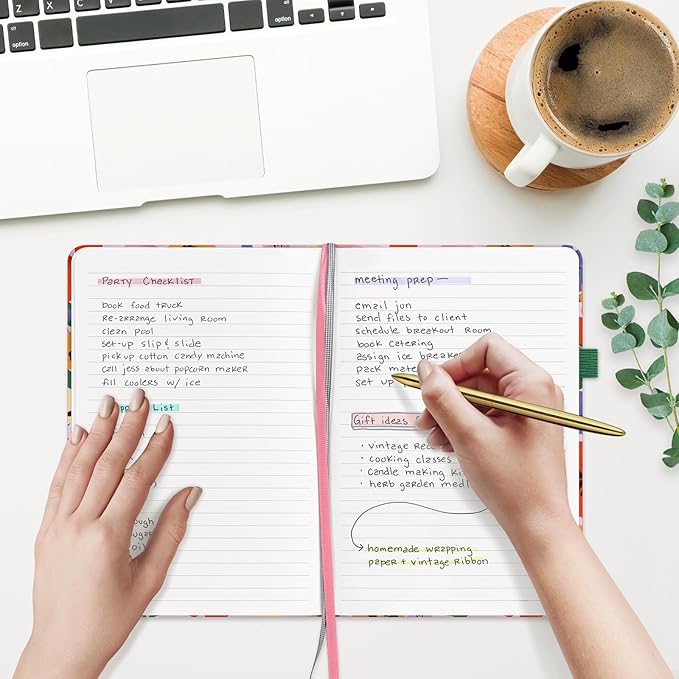 option
option
Party Checklist
book food truck
Re-arrange living room
clean pool
set-up slip & slide
pick up cotton candy machine
call jess about popcorn maker
fill coolers w/ ice
List
meeting prep —
email jun
send files to client
schedule breakout room
book catering
assign ice
pack
set up
Gift ideas
· vintage
· cooking classes
· candle making
· herb garden
homemade wrapping
paper + vintage ribbon